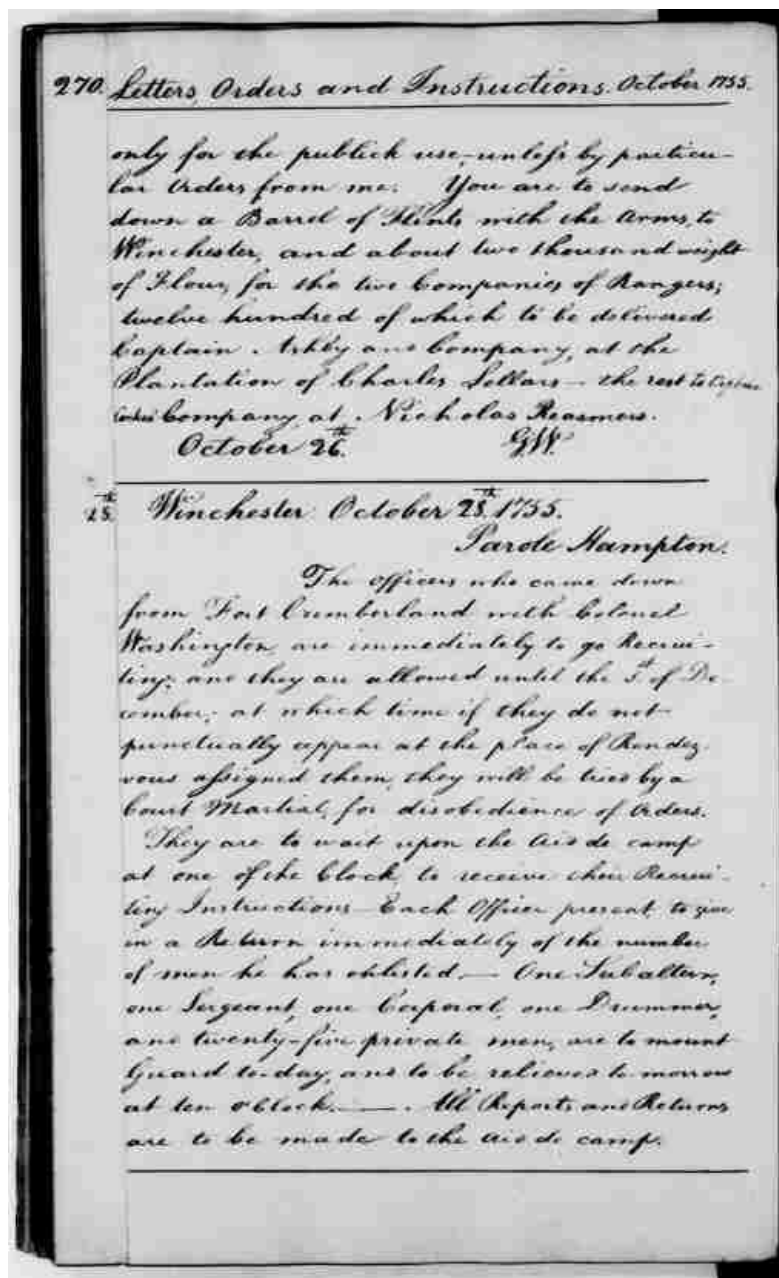 270. Letters, Orders and Instructions. October 1755.
only for the publick use, unless by particu-
lar Orders from me. You are to send
down a Barrel of Flints with the Arms, to
Winchester, and about two thousand weight
of Flour, for the two Companies of Rangers;
twelve hundred of which to be delivered
Captain Ashby and Company, at the
Plantation of Charles Sellars – the rest to Captain
Cockes Company at Nicholas Reasmers.
October 26th. GW.
28th. Winchester October 28th. 1755.
Parole Hampton.
The officers who came down
from Fort Cumberland with Colonel
Washington, are immediately to go Recrui-
ting; and they are allowed until the 1st. of De-
cember; at which time if they do not
punctually appear at the place of Rendez-
vous assigned them, they will be tried by a
Court Martial, for disobedience of Orders.
They are to wait upon the Aid de camp
at one of the Clock, to receive their Recrui-
ting Instructions – Each Officer present, to give
in a Return immediately of the number
of men he has enlisted. — One Subaltern,
one Sergeant, one Corporal, one Drummer,
and twenty-five private men, are to mount
Guard to-day, and to be relieved to-morrow
at ten o'Clock. — . All Reports and Returns
are to be made to the Aid de camp.